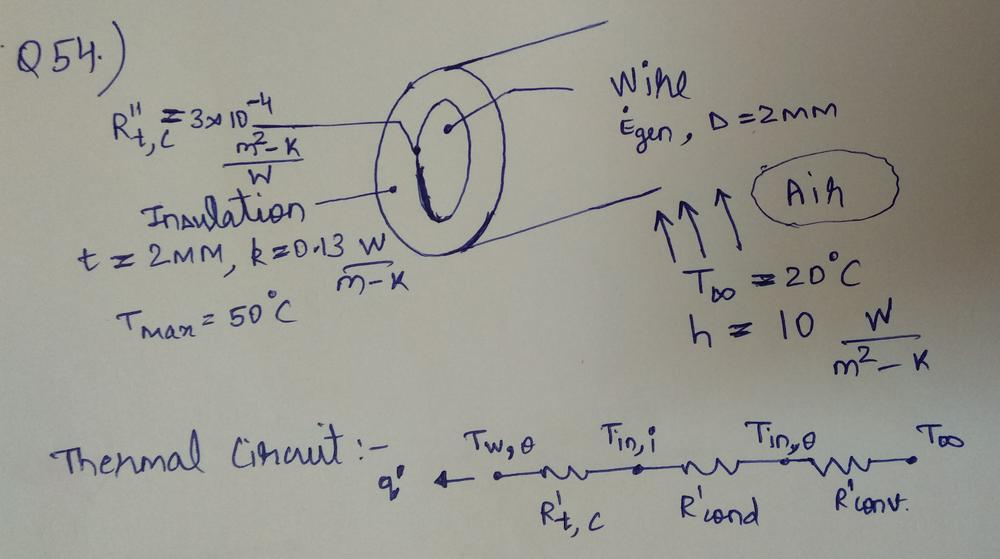 Q54.)
R''t,c = 3×10^-4 m²-K/W
Wire
Ėgen, D=2MM
Insulation
t = 2MM, k=0.13 W/m-K
Tmax = 50°C
Air
T∞ = 20°C
h = 10 W/m²-K
Thermal Circuit :-
q' Tw,θ Tin,i Tin,θ T∞
R't,c R'cond R'conv.